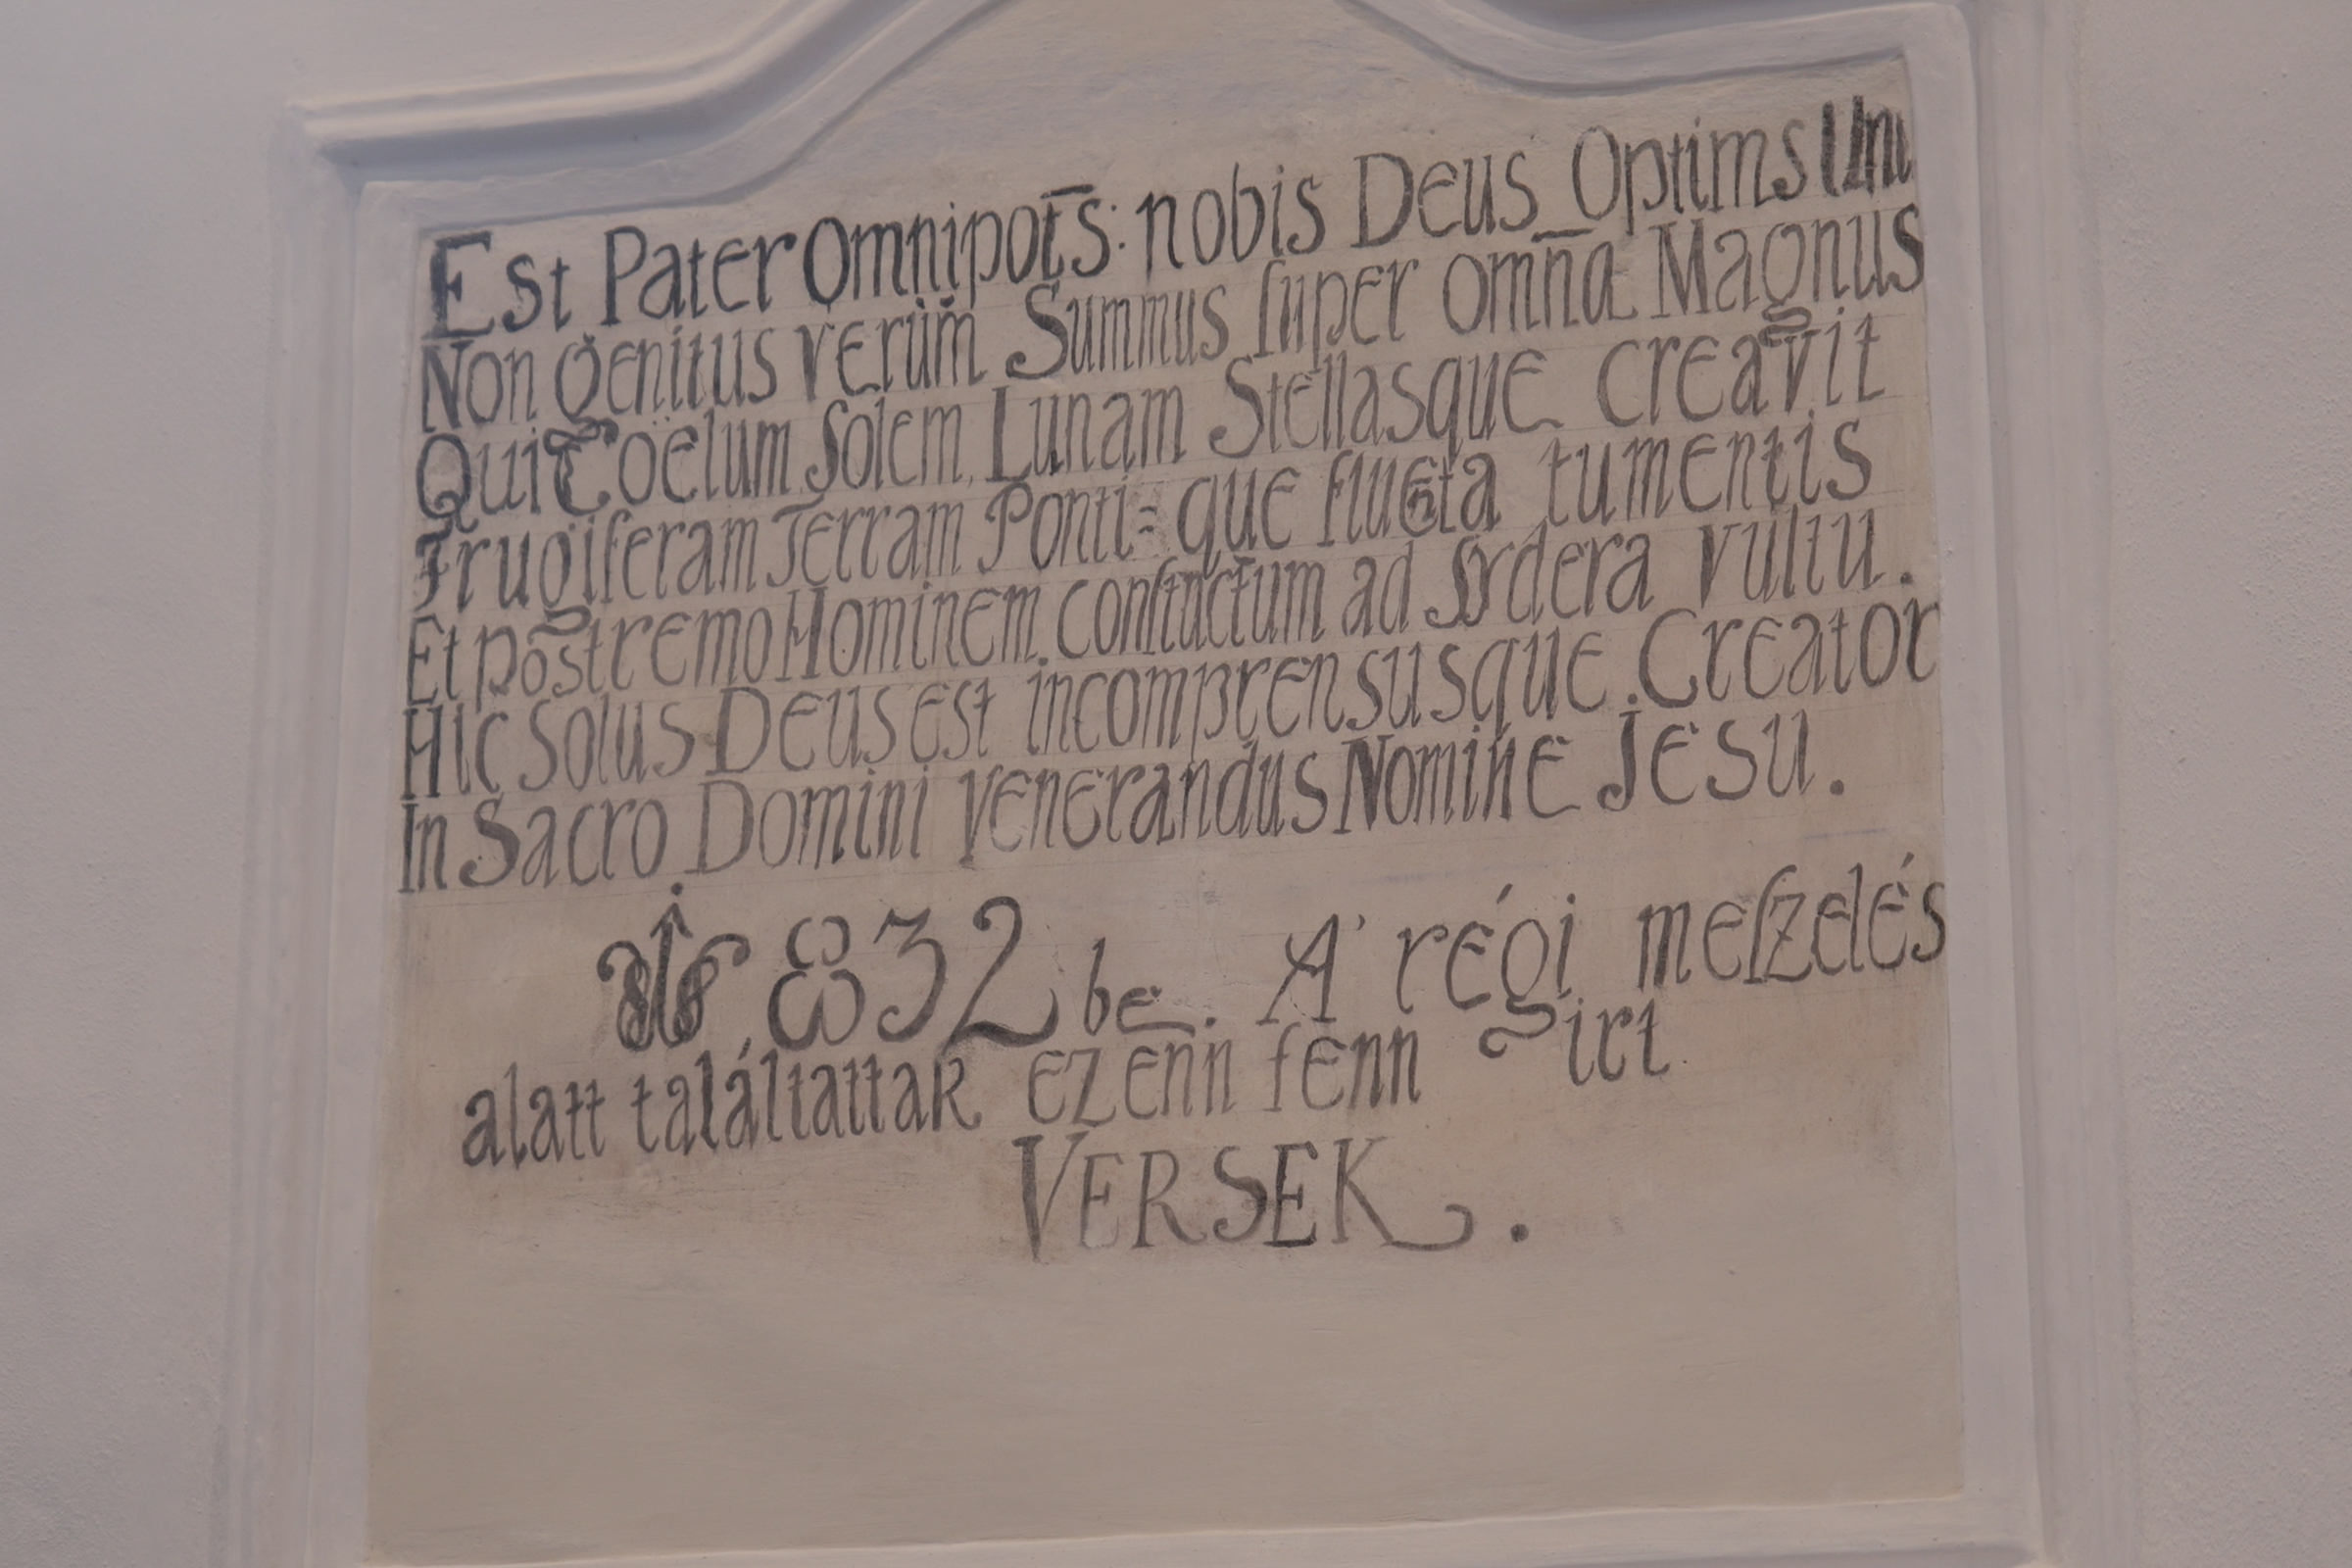 Est Pater Omnipot̄s: nobis Deus Optims Unu
Non Genitus verum̃ Summus ſuper omn̄a Magnus
Qui Coëlum Solem, Lunam Stellasque creavit
Frugiferam Terram Ponti=que fluenta tumentis
Et postremo Hominem conſtuctum ad Sydera vultu.
Hic Solus Deus est incomprensusque. Creator
In Sacro Domini venerandus Nomine Jesu.
1832 be. A' régi meſzelés
alatt találtattak ezenn fenn irt
VERSEK.